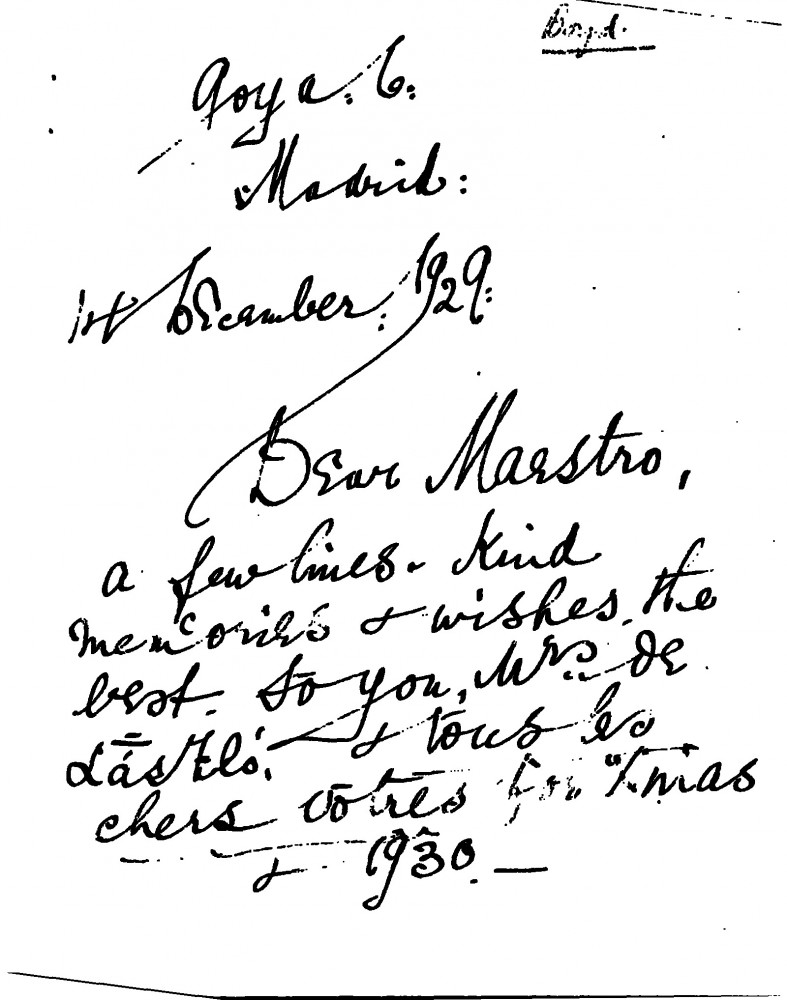 Boyd.
Goya. 6.
Madrid:
14 December. 1929.
Dear Maestro,
a few lines. Kind
memories & wishes. the
best. to you, Mrs. de
László. & tous les
chers vôtres for Xmas
& 1930. —